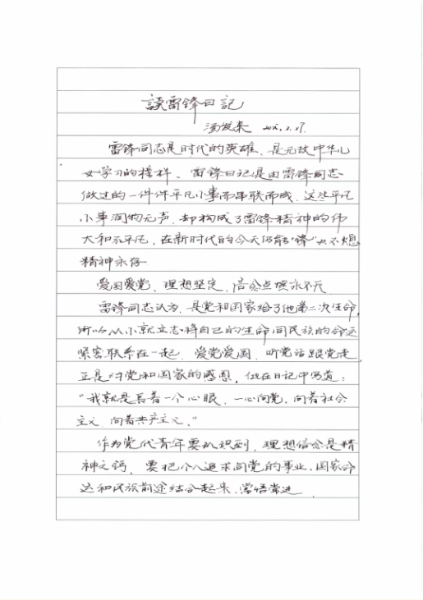 读雷锋日记
雷锋同志是时代的英雄，是无数中华儿
女学习的榜样。雷锋日记是由雷锋同志
做过的一件件平凡小事而串联而成，这些平凡
小事润物无声，却构成了雷锋精神的伟
大和不平凡，在新时代的今天仍能"锋"火不熄
精神永存
爱国爱党，理想坚定，信念点燃永不灭
雷锋同志认为，是党和国家给了他第二次生命，
所以从小就立志将自己的生命同民族的命运
紧密联系在一起，爱党爱国，听党话跟党走
正是对党和国家的感恩，他在日记中写道：
"我就是长着一个心眼，一心向党，向着社会
主义，向着共产主义。"
作为当代青年要认识到，理想信念是精
神之钙，要把个人追求同党的事业、国家命
运和民族前途结合起来，